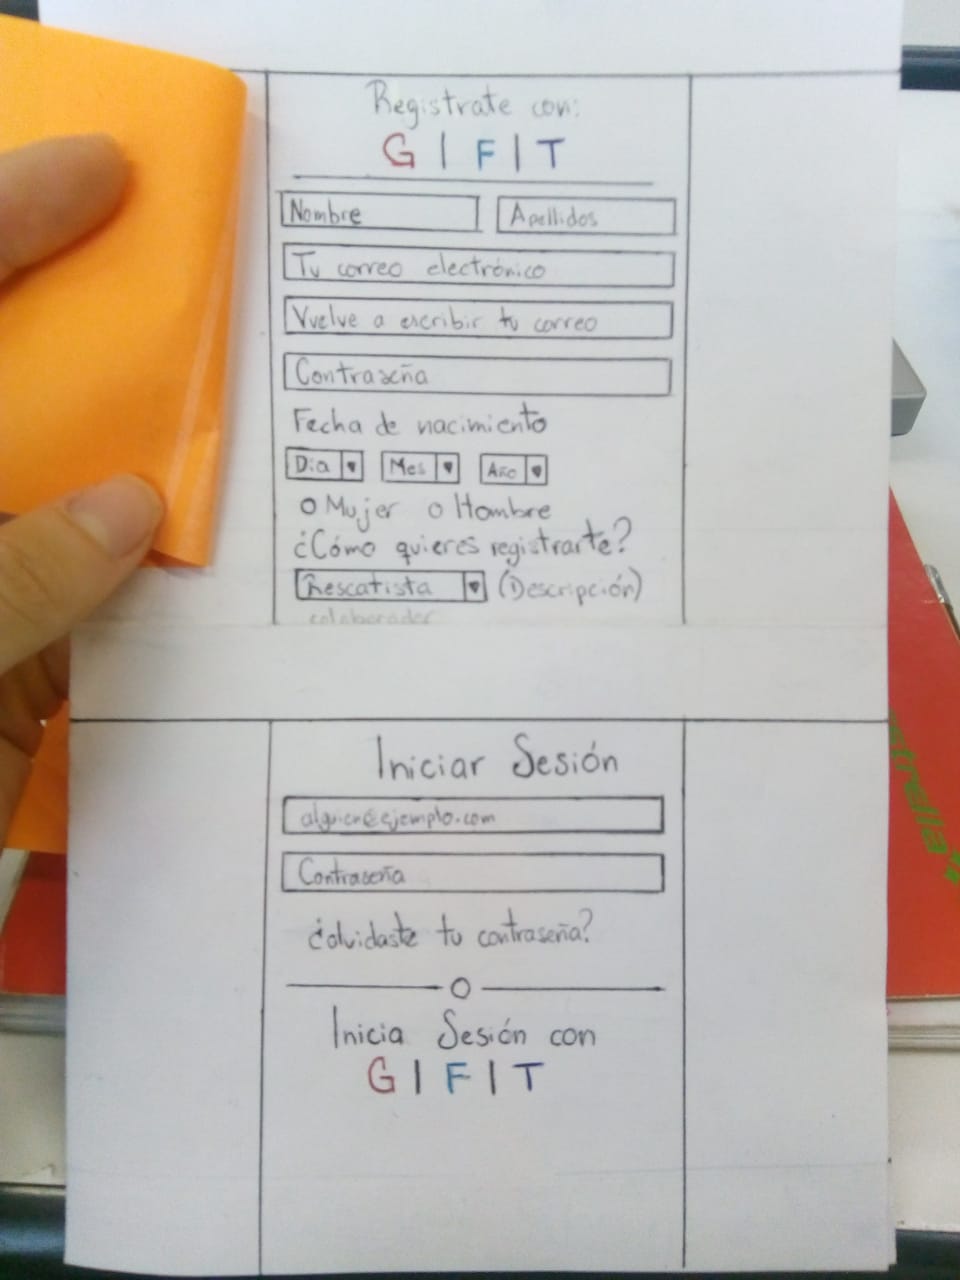 Registrate con:
G | F | T
Nombre
Apellidos
Tu correo electrónico
Vuelve a escribir tu correo
Contraseña
Fecha de nacimiento
Día
Mes
Año
Mujer
Hombre
¿Cómo quieres registrarte?
Rescatista (Descripción)
colaborador
Iniciar Sesión
alguien@ejemplo.com
Contraseña
¿olvidaste tu contraseña?
O
Inicia Sesión con
G | F | T